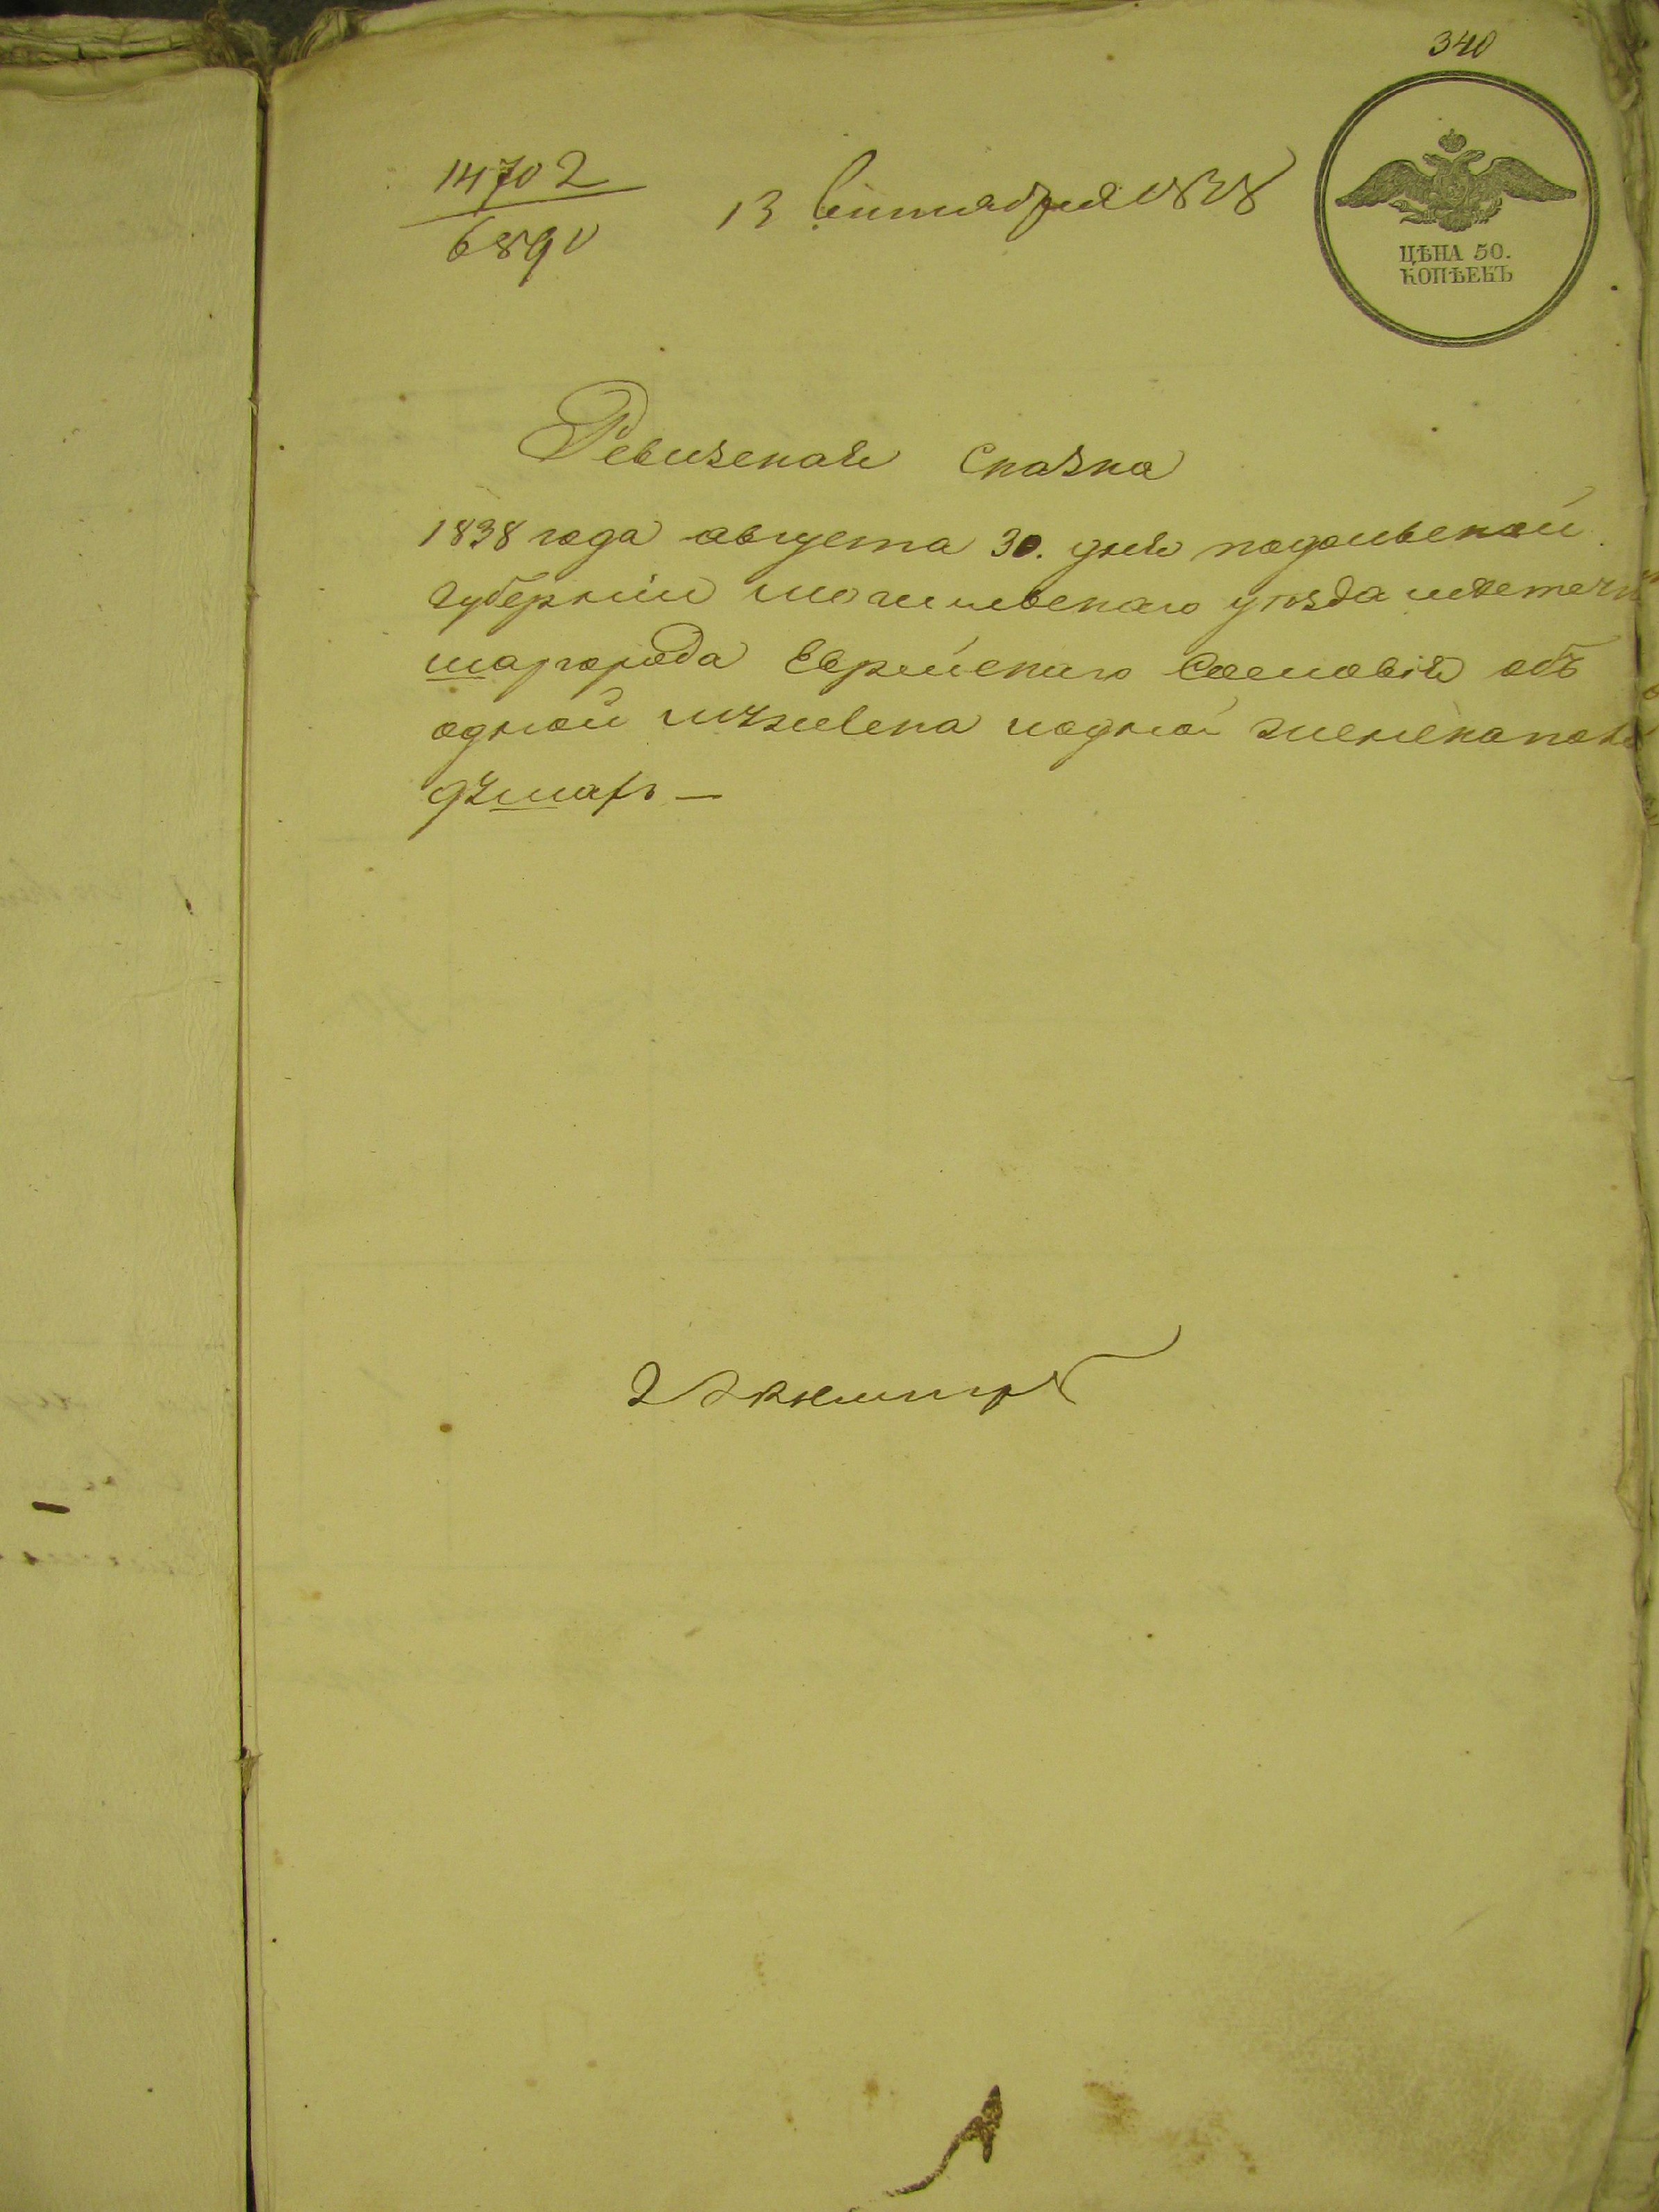 340
14702
6890
13 Сентября 1838
ЦѢНА 50.
КОПѢЕКЪ
Ревизская Сказка
1838 года августа 30. дня подольской
губерніи могилевскаго уѣзда мѣстечка
шаргорода Еврейскаго Сословія объ
одной мужеска иодной женскаполо
душахъ —